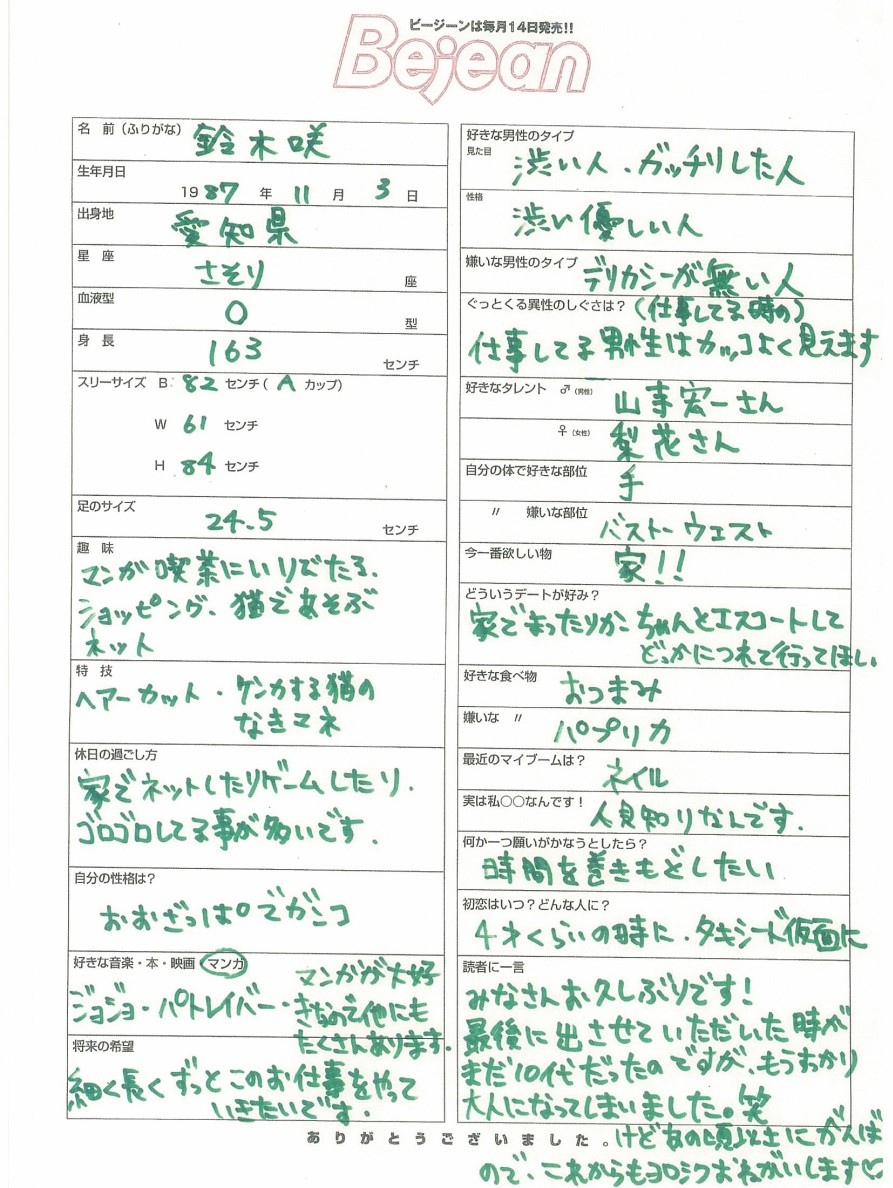 ビージーンは毎月14日発売!!
Bejean
名 前(ふりがな) 鈴木咲
生年月日
1987年 11月 3日
出身地 愛知県
星 座 さそり 座
血液型 O 型
身 長 163 センチ
スリーサイズ B 82センチ( A カップ)
W 61 センチ
H 84 センチ
足のサイズ 24.5 センチ
趣 味
マンガ喫茶にいりびたる、
ショッピング、猫であそぶ
ネット
特 技
ヘアーカット・ケンカする猫の
なきマネ
休日の過ごし方
家でネットしたりゲームしたり、
ゴロゴロしてる事が多いです、
自分の性格は?
おおざっぱでガンコ
好きな音楽・本・映画 マンガ
ジョジョ・パトレイバー・マンガが大好
きなので他にも
たくさんあります.
将来の希望
細く長くずっとこのお仕事をやって
いきたいです.
好きな男性のタイプ
見た目 渋い人、ガッチリした人
性格 渋い優しい人
嫌いな男性のタイプ デリカシーが無い人
ぐっとくる異性のしぐさは?(仕事してる時の)
仕事してる男性はカッコよく見えます
好きなタレント ♂(男性) 山寺宏一さん
♀(女性) 梨花さん
自分の体で好きな部位 手
〃 嫌いな部位 バスト〜ウエスト
今一番欲しい物 家!!
どういうデートが好み?
家でまったりか、ちゃんとエスコートして
どっかにつれて行ってほしい.
好きな食べ物 おつまみ
嫌いな 〃 パプリカ
最近のマイブームは? ネイル
実は私○○なんです! 人見知りなんです.
何か一つ願いがかなうとしたら?
時間を巻きもどしたい
初恋はいつ?どんな人に?
4才くらいの時に、タキシード仮面に
読者に一言
みなさんお久しぶりです!
最後に出させていただいた時が
まだ10代だったのですが、もうすっかり
大人になってしまいました。笑
ありがとうございました。けどあの頃以上にがんば
ので、これからもヨロシクおねがいします♡